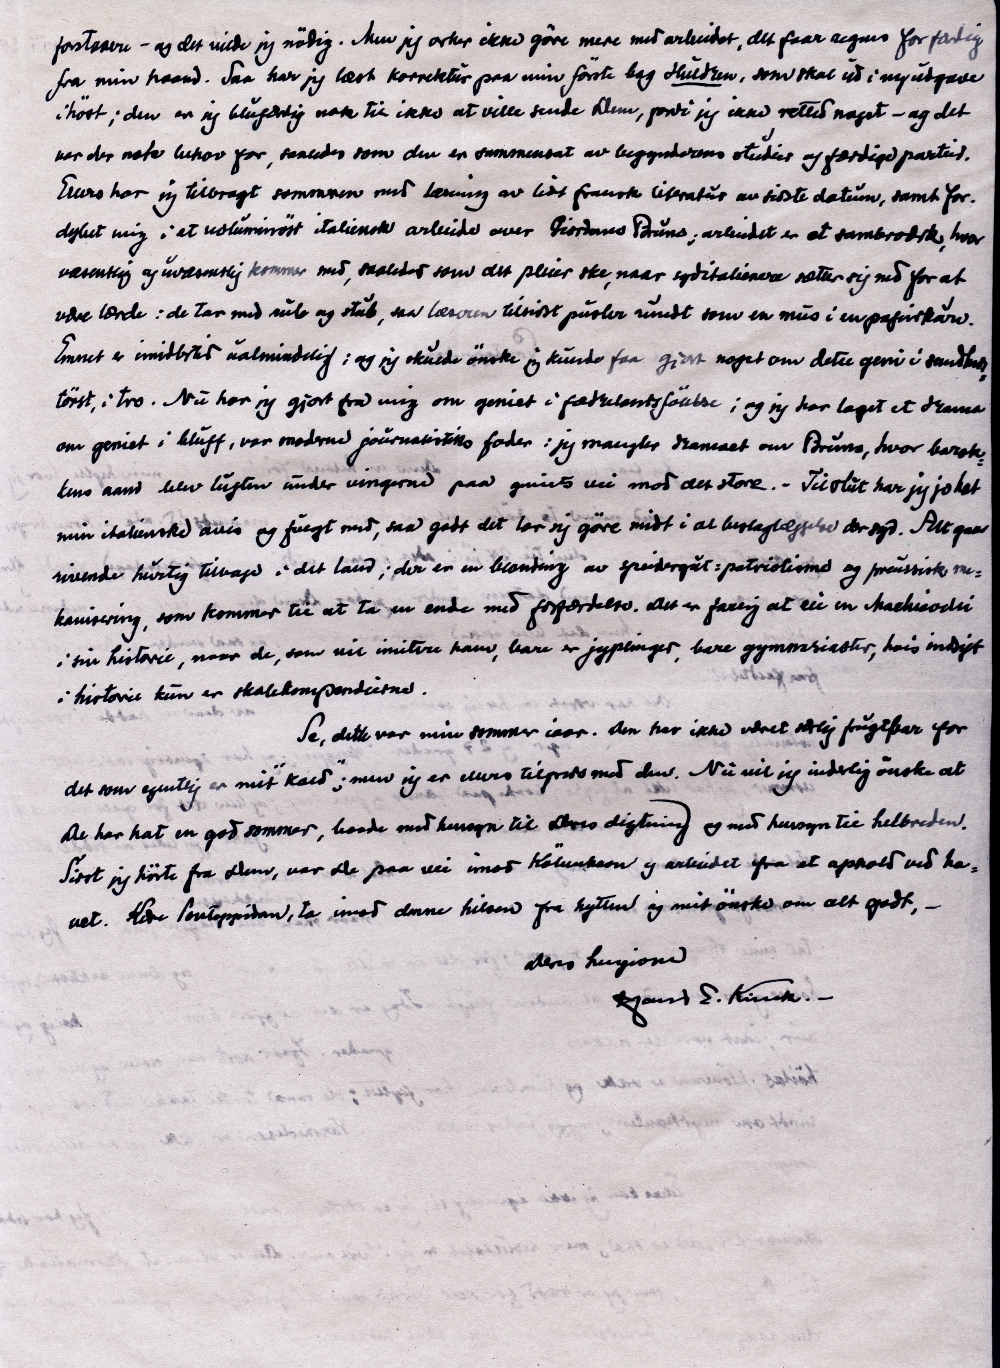 forstaaere – og det vilde jeg nödig. Men jeg orker ikke göre mere med arbeidet, det faar regnes for færdig
fra min haand. Saa har jeg læst korrektur paa min förste bog Huldren, som skal ud i ny udgave
i höst; den er jeg blufærdig nok til ikke at ville sende Dem, fordi jeg ikke rettet noget – og det
var der nok behov for, saaledes som den er sammensat av begynderens studier og færdige partier.
Ellers har jeg tilbragt sommeren med læsning av lidt fransk literatur av sidste datum, samt for-
dybet mig i et voluminöst italiensk arbeide over Giordano Bruno; arbeidet er et sambrosk, hvor
væsentlig og uvæsentlig kommer med, saaledes som det pleier ske, naar syditalienere sætter sig ned for at
være lærde: de tar med rub og stub, saa læseren tilsidst pusler rundt som en mus i en papirskurv.
Emnet er imidlertid ualmindelig; og jeg skulde önske jeg kunde faa gjort noget om dette geni i sandheds-
törst, i tro. Nu har jeg gjort fra mig om geniet i fædrelandsfölelse; og jeg har laget et drama
om geniet i bluff, vor moderne journalistiks fader: jeg mangler dramaet om Bruno, hvor barok-
kens aand blev luften under vingerne paa geniets vei mod det store. – Tilslut har jeg jo læst
min italienske avis og fulgt med, saa godt det lar sig göre midt i al beslaglæggelse der syd. Alt gaar
rivende hurtig tilbage i det land; der er en blanding av speidergut-patriotisme og preussisk me-
kanisering, som kommer til at ta en ende med forfærdelse. Det er farlig at eie en Machiavelli
i sin historie, naar de, som vil imitere ham, bare er jyplinger, bare gymnasiaster, hvis indsigt
i historie kun er skolekompendierne.
Se, dette var min sommer iaar. Den har ikke været særlig frugtbar for
det som egentlig er mit "kald"; men jeg er ellers tilfreds med den. Nu vil jeg inderlig önske at
De har hat en god sommer, baade med hensyn til Deres digtning og med hensyn til helbreden.
Sidst jeg hörte fra Dem, var De paa vei imod Köbenhavn og arbeidet fra et ophold ved ha-
vet. Kjære Pontoppidan, ta imod denne hilsen fra hytten og mit önske om alt godt, –
Deres hengivne
Hans E. Kinck. –